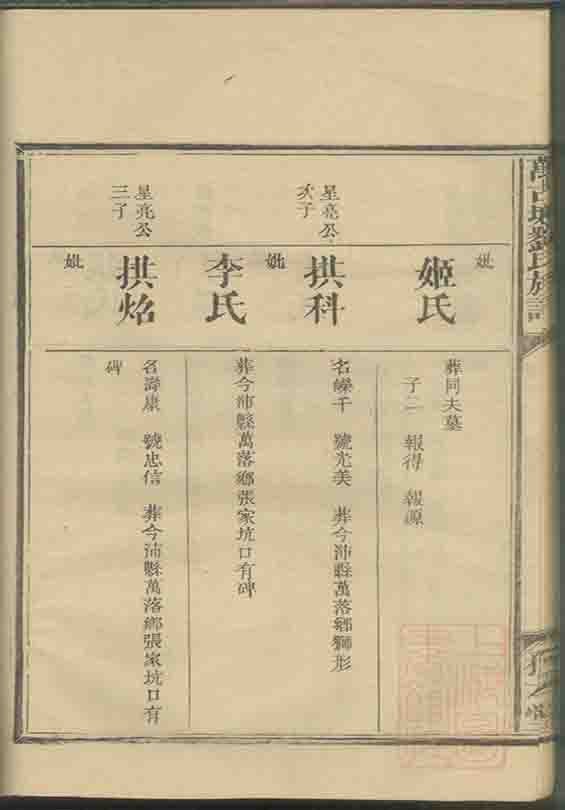 妣
姬氏
葬同夫墓
子二 報得 報源
星亮公
次子
拱科
名燦千 號光美 葬今沛縣萬落鄉獅形
妣
李氏
葬今沛縣萬落鄉張家坑口有碑
星亮公
三子
拱焰
名壽康 號忠信 葬今沛縣萬落鄉張家坑口有
碑
妣